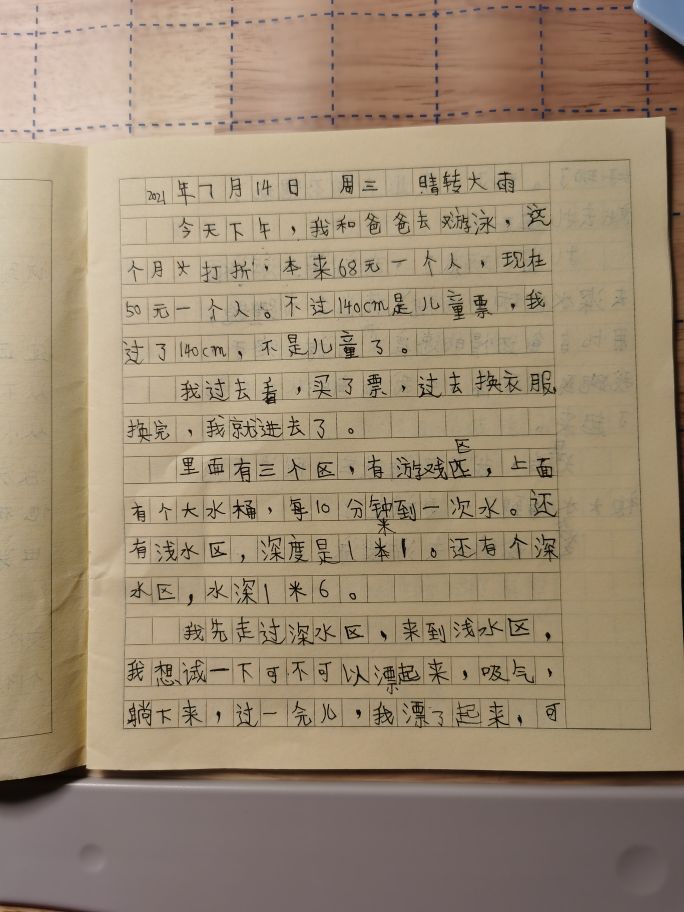 2021年7月14日 周三 晴转大雨
今天下午，我和爸爸去游泳，这
个月头打折，本来68元一个人，现在
50元一个人。不过140cm是儿童票，我
过了140cm，不是儿童了。
我过去看，买了票，过去换衣服
换完，我就进去了。
里面有三个区，有游戏区，上面
有个大水桶，每10分钟到一次水。还
有浅水区，深度是1米1。还有个深
水区，水深1米6。
我先走过深水区，来到浅水区，
我想试一下可不可以漂起来，吸气，
躺下来，过一会儿，我漂了起来，可